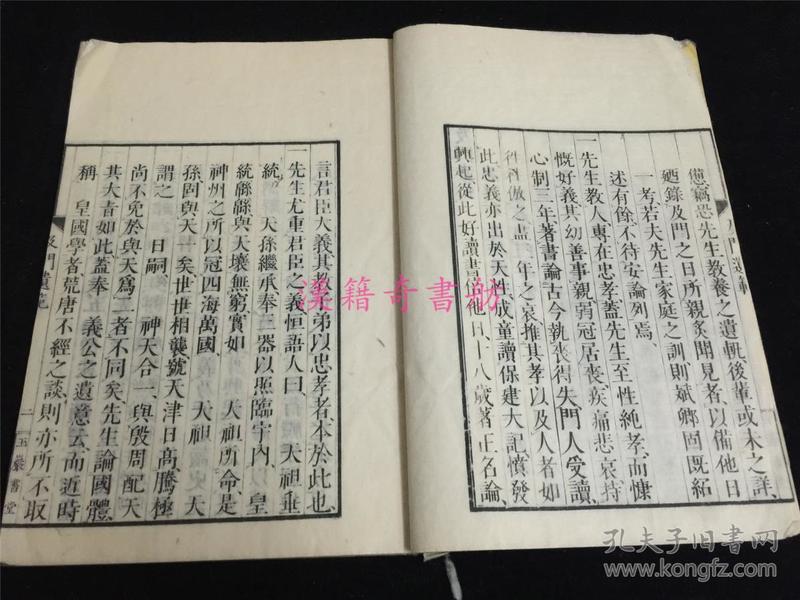 憊竊恐先生教養之遺軌後輩或未之詳
廼錄及門之日所親炙聞見者以備他日
一考若夫先生家庭之訓則斌卿固既紹
述有餘不待安論列焉
一先生教人專在忠孝蓋先生至性純孝而慷
慨好義其幼善事親弱冠居喪疾痛悲哀持
心制三年著書論古今執喪得失門人受讀
往往倣之盡三年之哀推其孝以及人者如
此忠義亦出於天性成童讀保建大記憤發
興起從此好讀書他日十八歲著正名論
言君臣大義其教子弟以忠孝者本於此也
一先生尤重君臣之義恒語人曰天祖垂
統天孫繼承奉三器以照臨宇內以皇
統緜緜與天壤無窮實如天祖所命是
神州之所以冠四海萬國天祖天
孫固與天一矣世世相襲號天津日高騰極
謂之日嗣神天合一與殷周配天
尚不免於與天爲二者不同矣先生論國體
其大者如此蓋奉義公之遺意云而近時
稱皇國學者荒唐不經之談則亦所不取
及門遺範
二
五巖書堂
漢籍奇書舫
孔夫子旧书网
www.kongfz.com